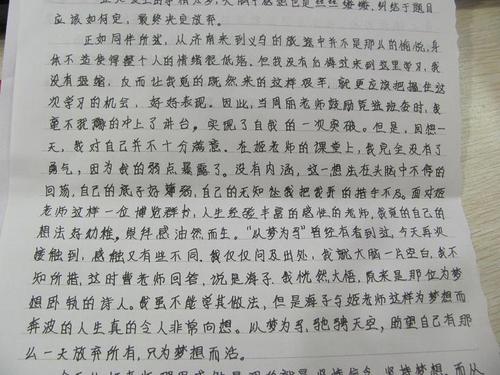 应该如何定，最终决定放弃。
正如同伴所望，从济南来到义乌的旅途中并不是那么的愉悦，身
体不适使得整个人的情绪很低落。但我没有后悔过来到这里学习，我
没有退缩，反而让我觉的既然来的这样艰辛，就更应该把握住这
次学习的机会，好好表现。因此，当周丽老师鼓励竞选班委时，我
毫不犹豫的冲上了讲台，实现了自我的一次突破。但是，回想一
天，我对自己并不十分满意。在姬老师的课堂上，我完全没有了
勇气，因为我的弱点暴露了。没有内涵，这一想法在头脑中不停的
回荡，自己的底子好薄弱，自己的无知让我把我弄的措手不及。面对姬
老师这样一位博览群书，人生经验丰富的感性的老师，我觉的自己的
想法好幼稚，崇拜感油然而生。“以梦为马”曾经有看到过，今天再次
接触到，感触又有些不同。我仅仅问及出处，我就大脑一片空白，我不
知所措，这时曹老师回答，说是海子，我恍然大悟，原来是那位为梦
想卧轨的诗人。我虽不能学其做法，但是海子与姬老师这样为梦想而
奔波的人生真的令人非常向想。以梦为马，驰骋天空，盼望自己有那
么一天放弃所有，只为梦想而活。